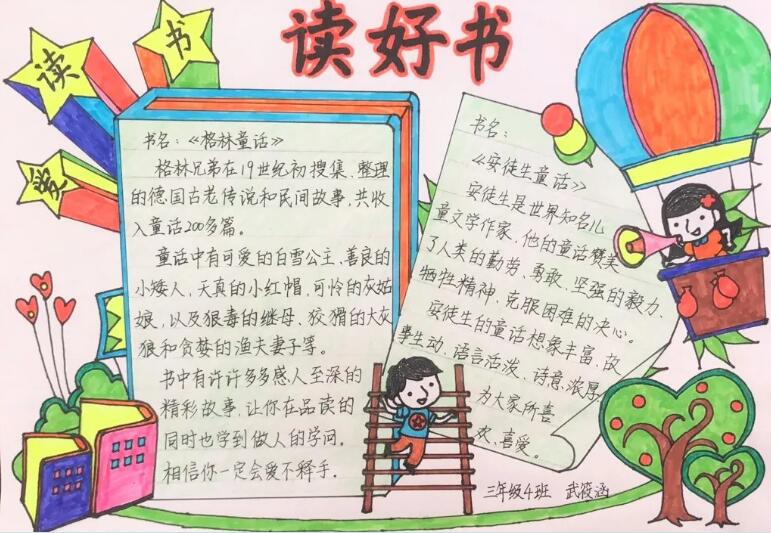 读好书
读
书
爱
书名：《格林童话》
格林兄弟在19世纪初搜集、整理
的德国古老传说和民间故事，共收
入童话200多篇。
童话中有可爱的白雪公主、善良的
小矮人，天真的小红帽，可怜的灰姑
娘，以及狠毒的继母、狡猾的大灰
狼和贪婪的渔夫妻子等。
书中有许许多多感人至深的
精彩故事，让你在品读的
同时也学到做人的学问。
相信你一定会爱不释手。
书名：
《安徒生童话》
安徒生是世界知名儿
童文学作家，他的童话赞美
了人类的勤劳、勇敢、坚强的毅力、
牺牲精神、克服困难的决心。
安徒生的童话想象丰富、故
事生动、语言活泼、诗意浓厚，
为大家所喜
欢、喜爱。
三年级4班 武筱涵